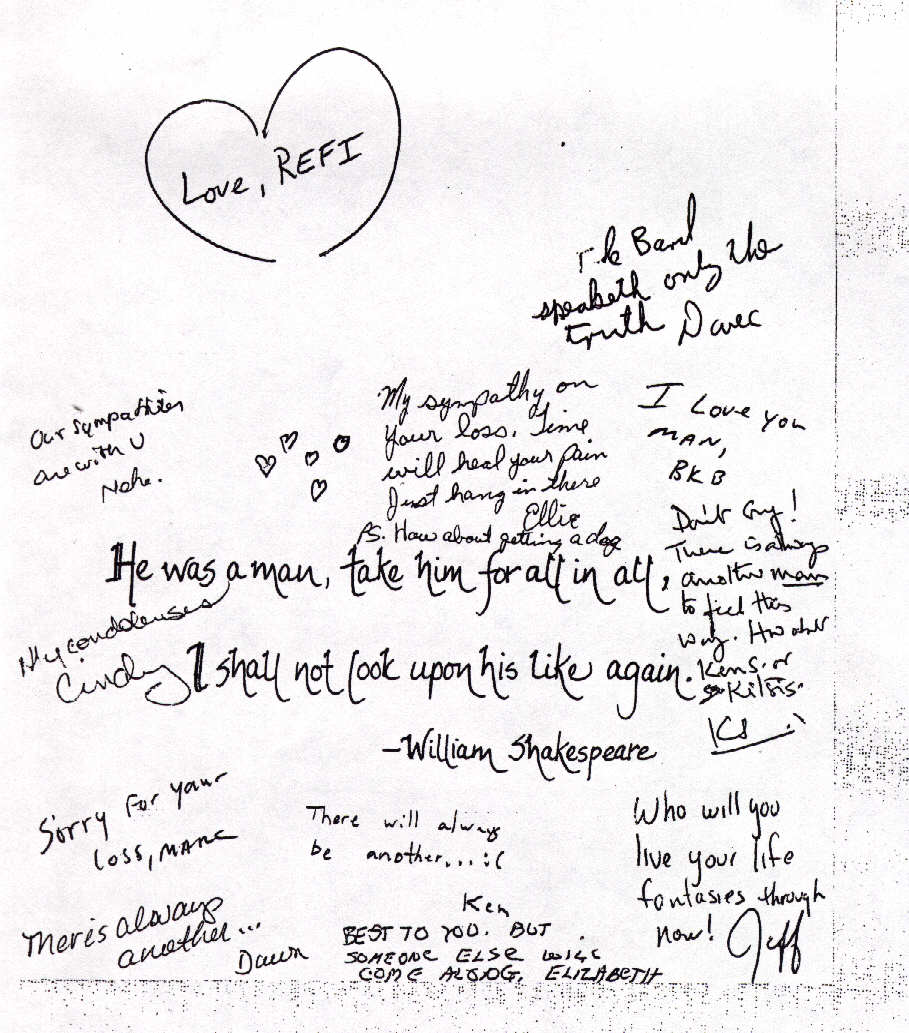 Love, REFI
Bard
speaketh only the
truth Dave
Our Sympathies
are with U
My sympathy on
your loss. Time
will heal your pain
Just hang in there
Ellie
PS. How about getting a dog
I Love you
MAN,
BKB
Don't Cry!
There is always
another man
to feel this
way. How about
Ken S. or
He was a man, take him for all in all,
My condolenses
Cindy
I shall not look upon his like again.
KS
-William Shakespeare
Sorry for your
loss, MARC
There will always
be another...:(
Ken
Who will you
live your life
fantasies through
now! Jeff
Ther is always
another...
Dawn
BEST TO YOU. BUT
SOMEONE ELSE WILL
COME ALONG, ELIZABETH